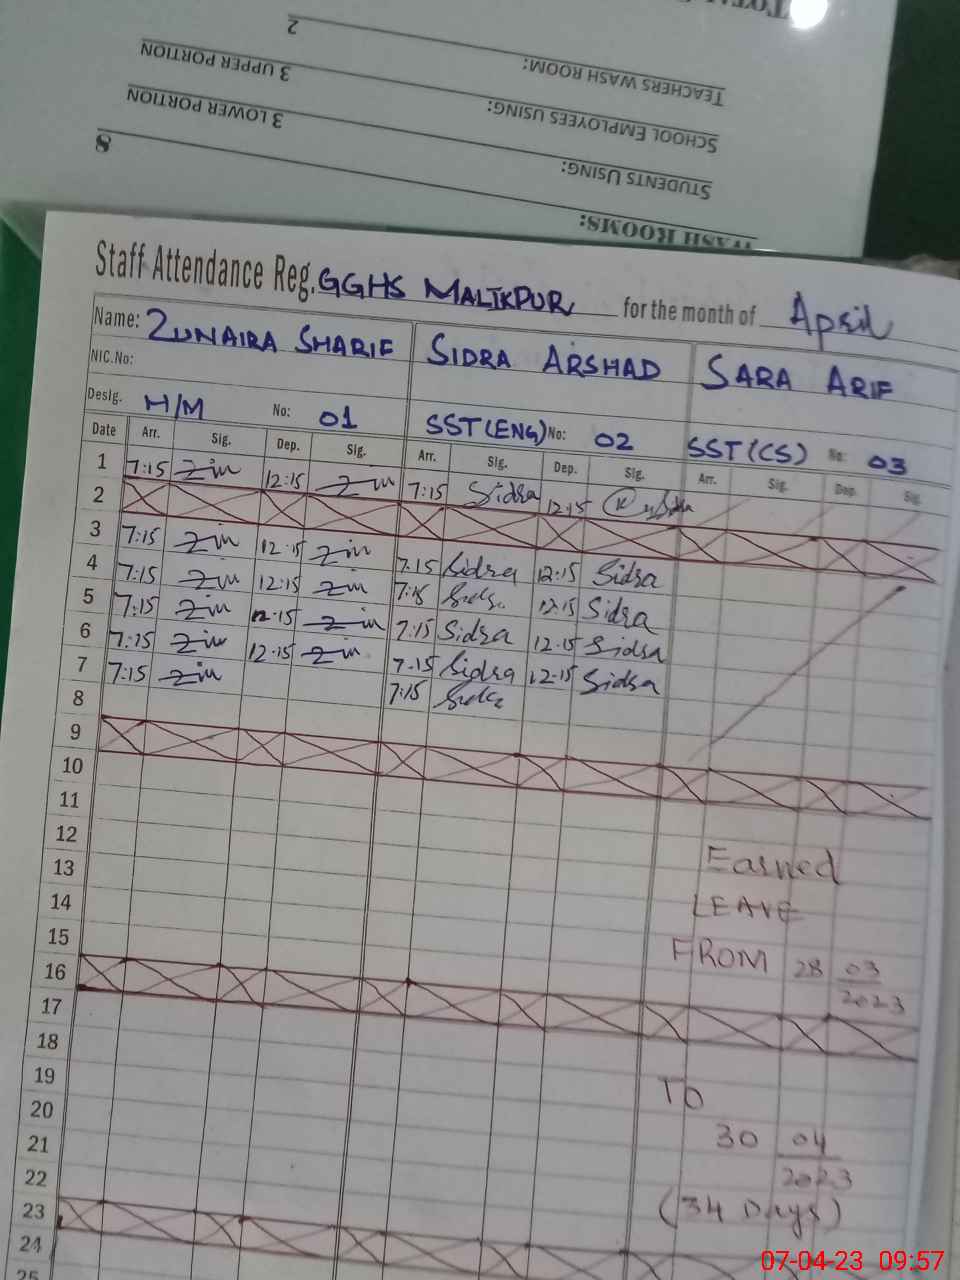 TOTAL
TEACHERS WASH ROOM: 2
SCHOOL EMPLOYEES USING: 3 UPPER PORTION
STUDENTS USING: 3 LOWER PORTION
WASH ROOMS: 8
Staff Attendance Reg. GGHS MALIKPUR for the month of April
Name: ZUNAIRA SHARIF SIDRA ARSHAD SARA ARIF
NIC.No:
Desig. H/M No: 01 SST(ENG) No: 02 SST(CS) No: 03
Date Arr. Sig. Dep. Sig. Arr. Sig. Dep. Sig. Arr. Sig. Dep. Sig.
1 7:15 12:15 7:15 Sidra 12:15 Sidra
2
3 7:15 12:15 7:15 Sidra 12:15 Sidra
4 7:15 12:15 7:15 Sidra 12:15 Sidra
5 7:15 12:15 7:15 Sidra 12:15 Sidra
6 7:15 12:15 7:15 Sidra 12:15 Sidra
7 7:15 7:15 Sidra
8
9
10
11
12
13 Earned
14 LEAVE
15 FROM 28 03
16 2023
17
18
19 TO
20 30 04
21 2023
22 (34 Days)
23
24
25
07-04-23 09:57